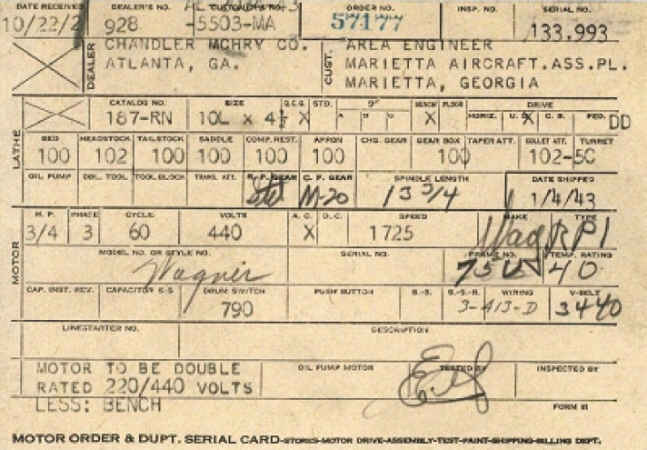 DATE RECEIVED DEALER'S NO. CUSTOMER'S NO. ORDER NO. INSP. NO. SERIAL NO.
10/22/2 928 -5503-MA 57177 133.993
DEALER CHANDLER MCHRY CO. CUST. AREA ENGINEER
ATLANTA, GA. MARIETTA AIRCRAFT.ASS.PL.
MARIETTA, GEORGIA
LATHE CATALOG NO. SIZE Q.C.G. STD. 9" BENCH FLOOR DRIVE
HORIZ. U.S. C.B. PED.
187-RN 10L x 4½ X X X DD
BED HEADSTOCK TAILSTOCK SADDLE COMP. REST. APRON CHG. GEAR GEAR BOX TAPER ATT. COLLET ATT. TURRET
100 102 100 100 100 100 100 102-5C
OIL PUMP DBL. TOOL TOOL BLOCK TRANS. ATT. R. P. GEAR C. F. GEAR SPINDLE LENGTH DATE SHIPPED
Stl M-20 13 3/4 1/4/43
MOTOR H. P. PHASE CYCLE VOLTS A. C. D. C. SPEED MAKE TYPE
3/4 3 60 440 X 1725 Wag RP1
MODEL NO. OR STYLE NO. SERIAL NO. FRAME NO. TEMP. RATING
Wagner 75U 40
CAP. INST. REV. CAPACITOR S.S. DRUM SWITCH PUSH BUTTON B.-S. B.-S.-R. WIRING V-BELT
790 3-413-D 3440
LINESTARTER NO. DESCRIPTION
MOTOR TO BE DOUBLE OIL PUMP MOTOR TESTED BY INSPECTED BY
RATED 220/440 VOLTS
LESS: BENCH FORM 81
MOTOR ORDER & DUPT. SERIAL CARD-STORES-MOTOR DRIVE-ASSEMBLY-TEST-PAINT-SHIPPING-BILLING DEPT.